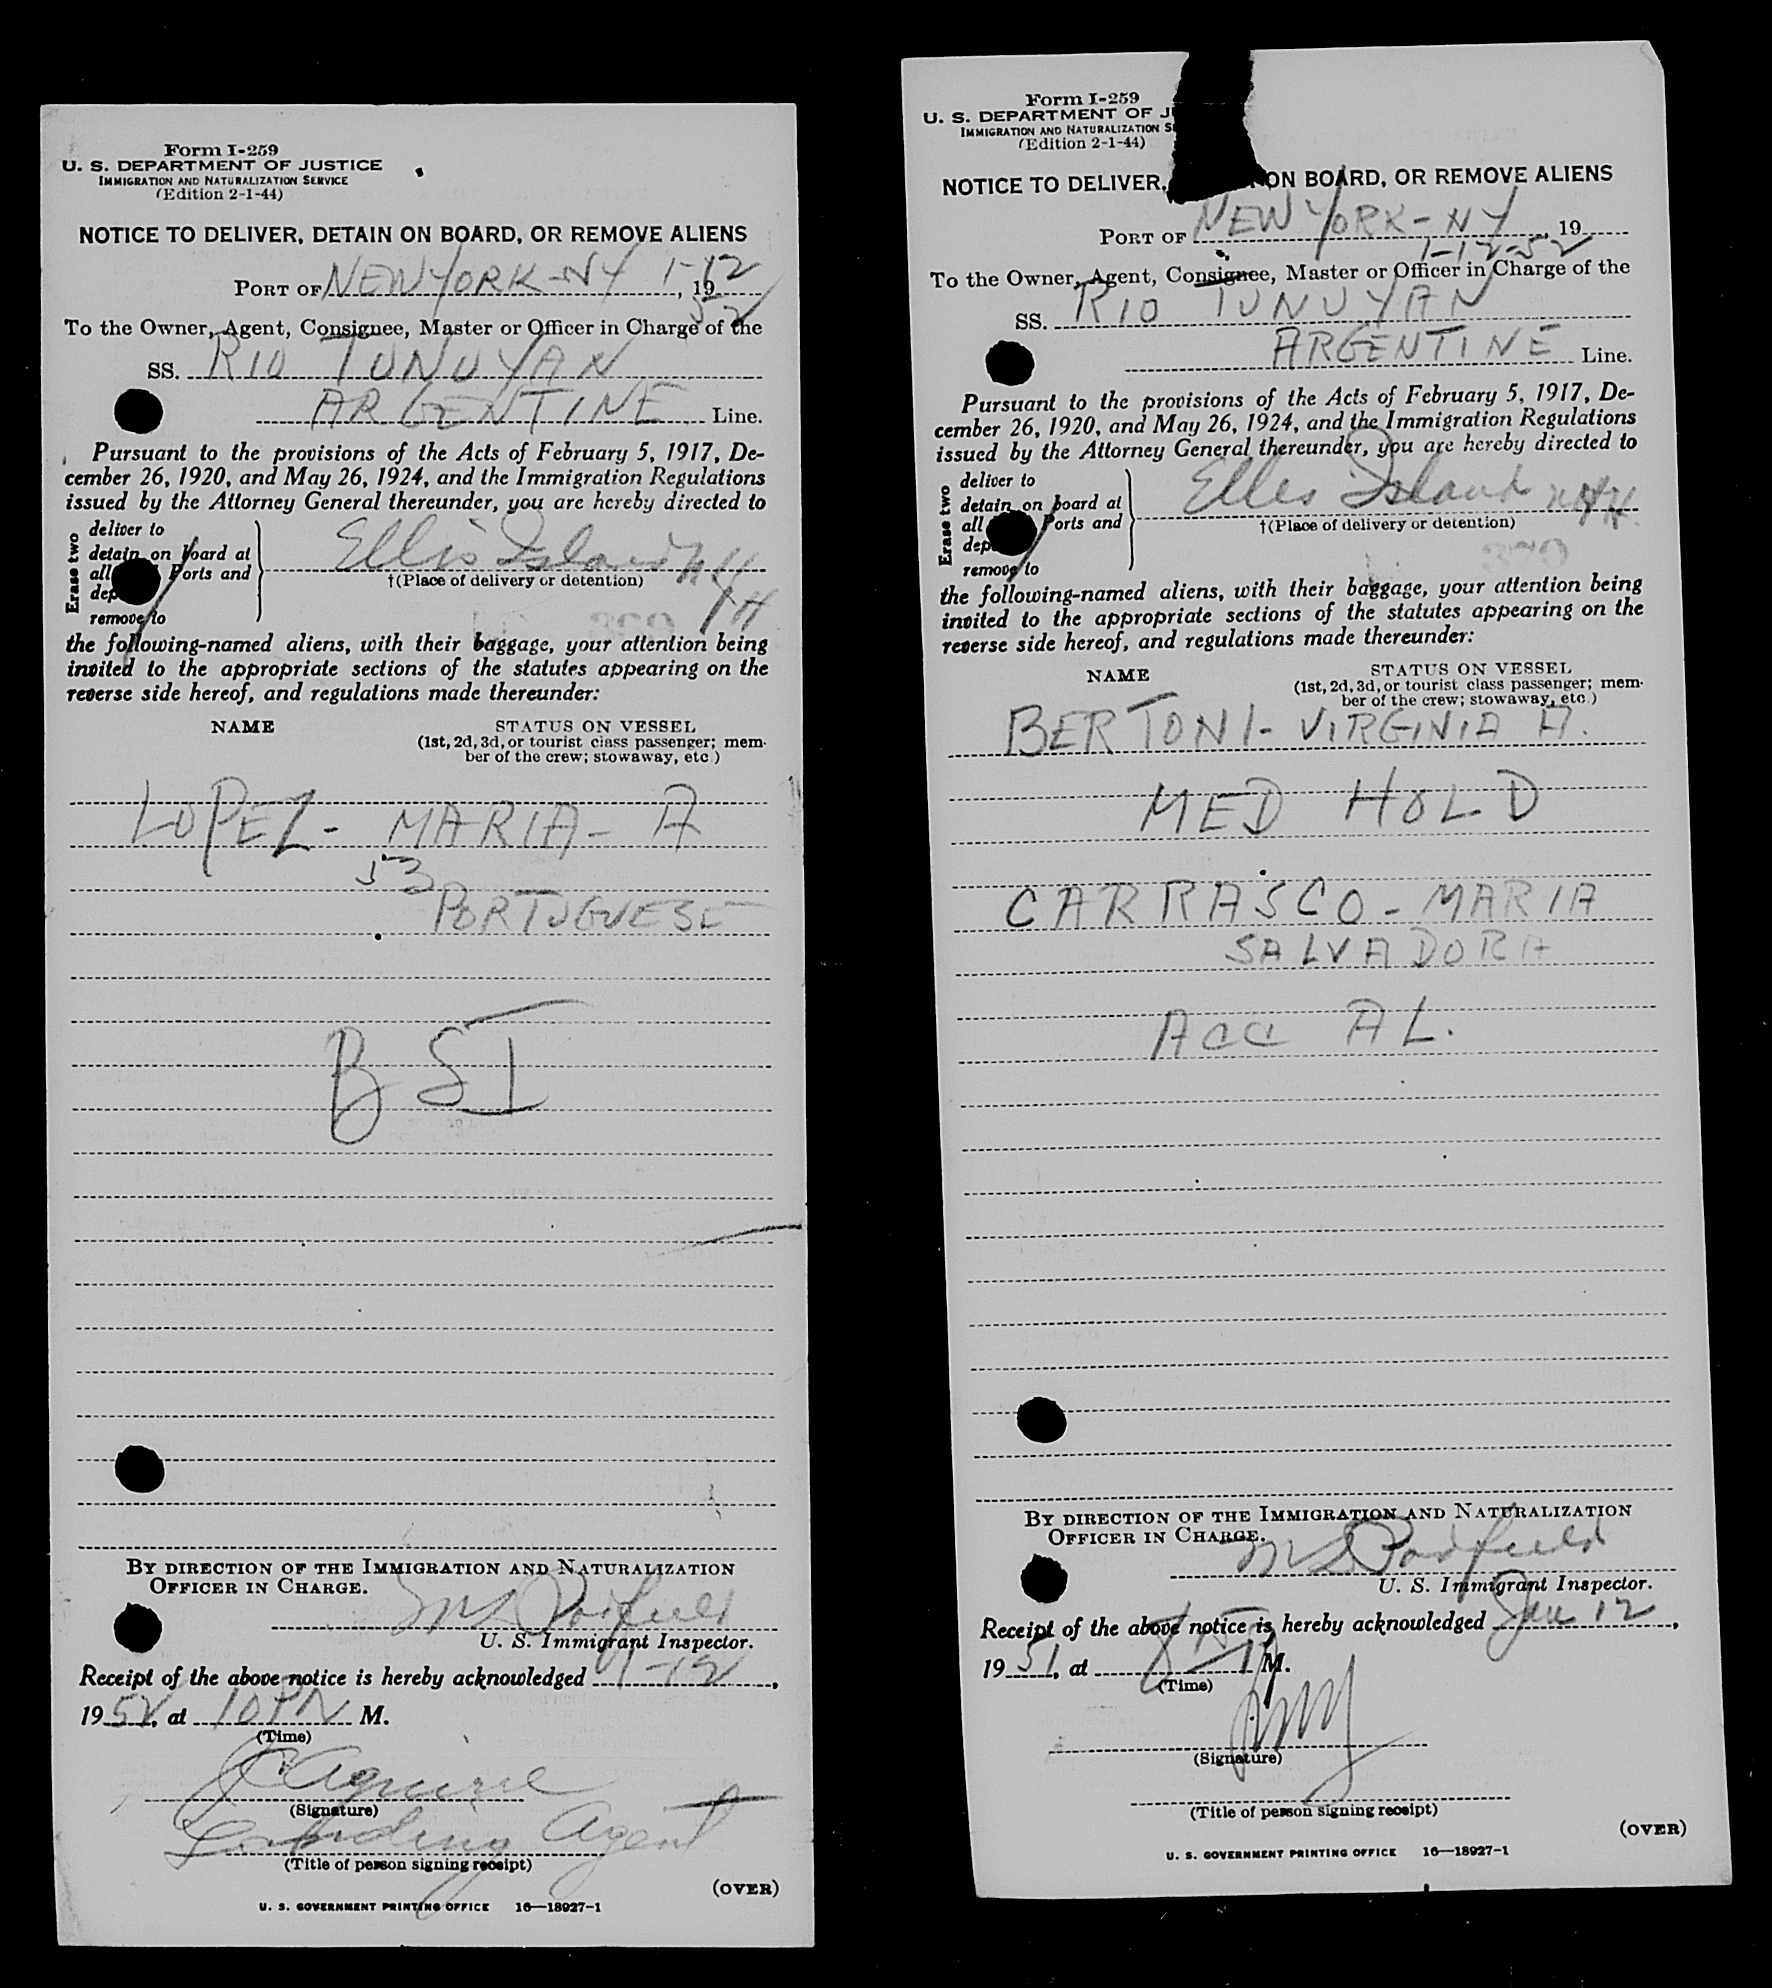 Form I-259
U. S. DEPARTMENT OF JUSTICE
IMMIGRATION AND NATURALIZATION SERVICE
(Edition 2-1-44)
NOTICE TO DELIVER, DETAIN ON BOARD, OR REMOVE ALIENS
PORT OF NEW YORK-NY 1-12, 19
52
To the Owner, Agent, Consignee, Master or Officer in Charge of the
SS. RIO TUNUYAN
ARGENTINE Line.
Pursuant to the provisions of the Acts of February 5, 1917, De-
cember 26, 1920, and May 26, 1924, and the Immigration Regulations
issued by the Attorney General thereunder, you are hereby directed to
Erase two
deliver to
detain on board at
all Ports and
dep
remove to
Ellis Island NYH
†(Place of delivery or detention)
the following-named aliens, with their baggage, your attention being
invited to the appropriate sections of the statutes appearing on the
reverse side hereof, and regulations made thereunder:
NAME STATUS ON VESSEL
(1st, 2d, 3d, or tourist class passenger; mem-
ber of the crew; stowaway, etc.)
LOPEZ- MARIA- A
53
PORTUGUESE
BSI
BY DIRECTION OF THE IMMIGRATION AND NATURALIZATION
OFFICER IN CHARGE.
U. S. Immigrant Inspector.
Receipt of the above notice is hereby acknowledged 1-12,
1952, at 10PM M.
(Time)
Aguirre
(Signature)
Landing Agent
(Title of person signing receipt)
(OVER)
U. S. GOVERNMENT PRINTING OFFICE 16—18927-1
Form I-259
U. S. DEPARTMENT OF J
IMMIGRATION AND NATURALIZATION SE
(Edition 2-1-44)
NOTICE TO DELIVER, ON BOARD, OR REMOVE ALIENS
PORT OF NEW YORK-NY, 19
1-12-52
To the Owner, Agent, Consignee, Master or Officer in Charge of the
SS. RIO TUNUYAN
ARGENTINE Line.
Pursuant to the provisions of the Acts of February 5, 1917, De-
cember 26, 1920, and May 26, 1924, and the Immigration Regulations
issued by the Attorney General thereunder, you are hereby directed to
Erase two
deliver to
detain on board at
all Ports and
dep
remove to
Ellis Island NYH
†(Place of delivery or detention)
the following-named aliens, with their baggage, your attention being
invited to the appropriate sections of the statutes appearing on the
reverse side hereof, and regulations made thereunder:
NAME STATUS ON VESSEL
(1st, 2d, 3d, or tourist class passenger; mem-
ber of the crew; stowaway, etc.)
BERTONI- VIRGINIA A.
MED HOLD
CARRASCO - MARIA
SALVADORA
ACC AL.
BY DIRECTION OF THE IMMIGRATION AND NATURALIZATION
OFFICER IN CHARGE.
U. S. Immigrant Inspector.
Receipt of the above notice is hereby acknowledged Jan 12,
1951, at M.
(Time)
(Signature)
(Title of person signing receipt)
(OVER)
U. S. GOVERNMENT PRINTING OFFICE 16—18927-1